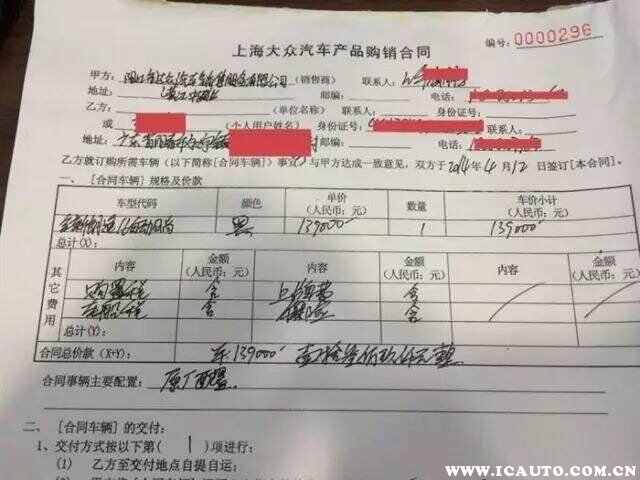 上海大众汽车产品购销合同
编号: 0000296
甲方: 汽车销售服务有限公司 (销售商) 联系人:
地址: 邮编: 电话:
乙方: (单位名称) 身份证号:
或 (个人用户姓名) 身份证号: 联系人:
地址: 广东省 邮编: 电话:
乙方就订购所需车辆(以下简称[合同车辆])事宜与甲方达成一致意见,双方于2014年4月12日签订[本合同]。
一、[合同车辆]规格及价款
车型代码 颜色 单价(人民币:元) 数量 车价小计(人民币:元)
黑 139000 1 139000
总计(X):
其它费用 内容 金额(人民币:元) 内容 金额(人民币:元) 内容 金额(人民币:元)
购置税 含 上牌费 含
车船税 含 保险 含
总计(Y):
合同总价款(X+Y): 139000 壹拾叁万玖仟元整
合同事辆主要配置: 原厂配置
二、[合同车辆]的交付:
1、交付方式按以下第( 1 )项进行:
(1) 乙方至交付地点自提自运;
WWW.ICAUTO.COM.CN